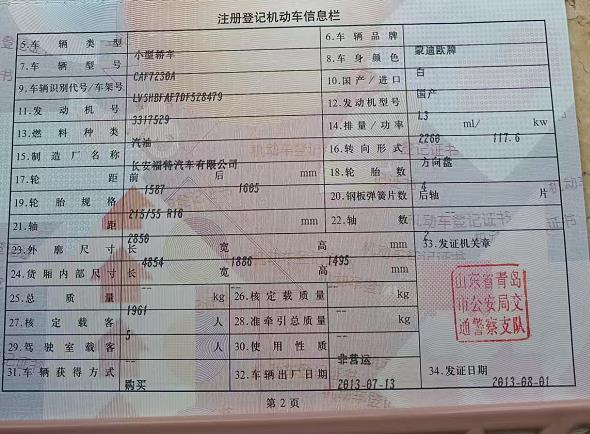 注册登记机动车信息栏
5.车辆类型 小型轿车 6.车辆品牌 蒙迪欧牌
7.车辆型号 CAF7230A 8.车身颜色 白
9.车辆识别代号/车架号 LVSHBFAF7DF528479 10.国产/进口 国产
11.发动机号 3317529 12.发动机型号 L3
13.燃料种类 汽油 14.排量/功率 2260 ml/ 117.6 kw
15.制造厂名称 长安福特汽车有限公司 16.转向形式 方向盘
17.轮距 前 1587 后 1605 mm 18.轮胎数 4
19.轮胎规格 215/55 R16 20.钢板弹簧片数 后轴 片
21.轴距 2850 mm 22.轴数 2
23.外廓尺寸 长 4854 宽 1886 高 1495 mm 33.发证机关章
24.货厢内部尺寸 长 -- 宽 -- 高 -- mm
25.总质量 1961 kg 26.核定载质量 -- kg
27.核定载客 5 人 28.准牵引总质量 -- kg
29.驾驶室载客 -- 人 30.使用性质 非营运
31.车辆获得方式 购买 32.车辆出厂日期 2013-07-13 34.发证日期 2013-08-01
山东省青岛
市公安局交
通警察支队
第2页